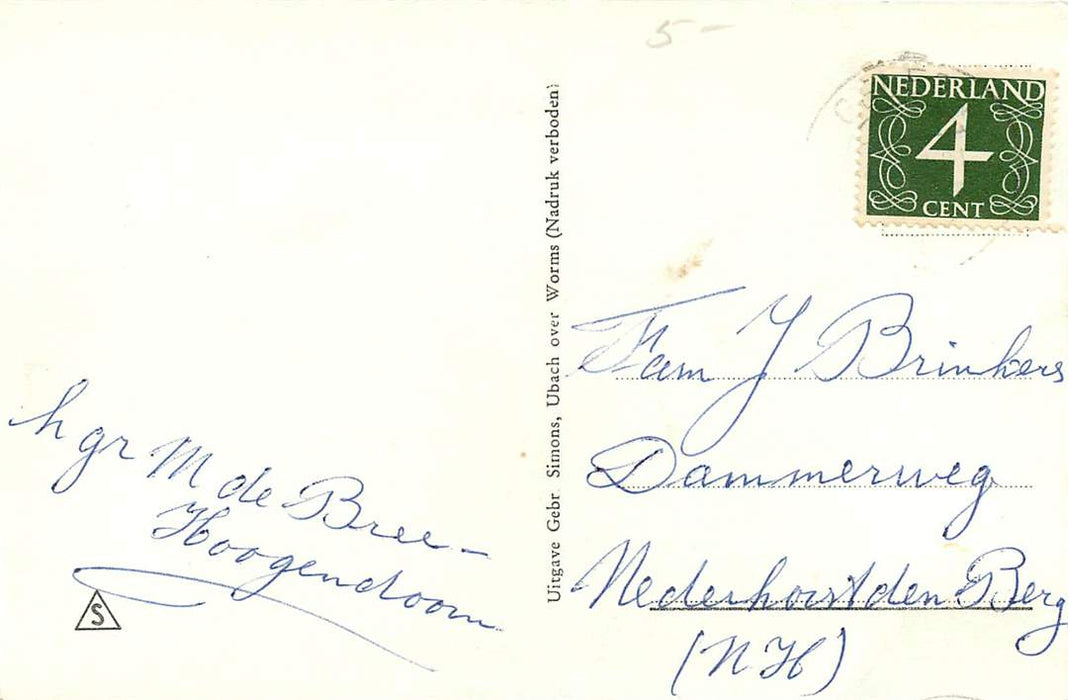 5-
NEDERLAND
4
CENT
Uitgave Gebr Simons, Ubach over Worms (Nadruk verboden)
h gr M de Bree-
Hoogendoorn
S
Fam J Brinkers
Dammerweg
Nederhorst den Berg
(NH)